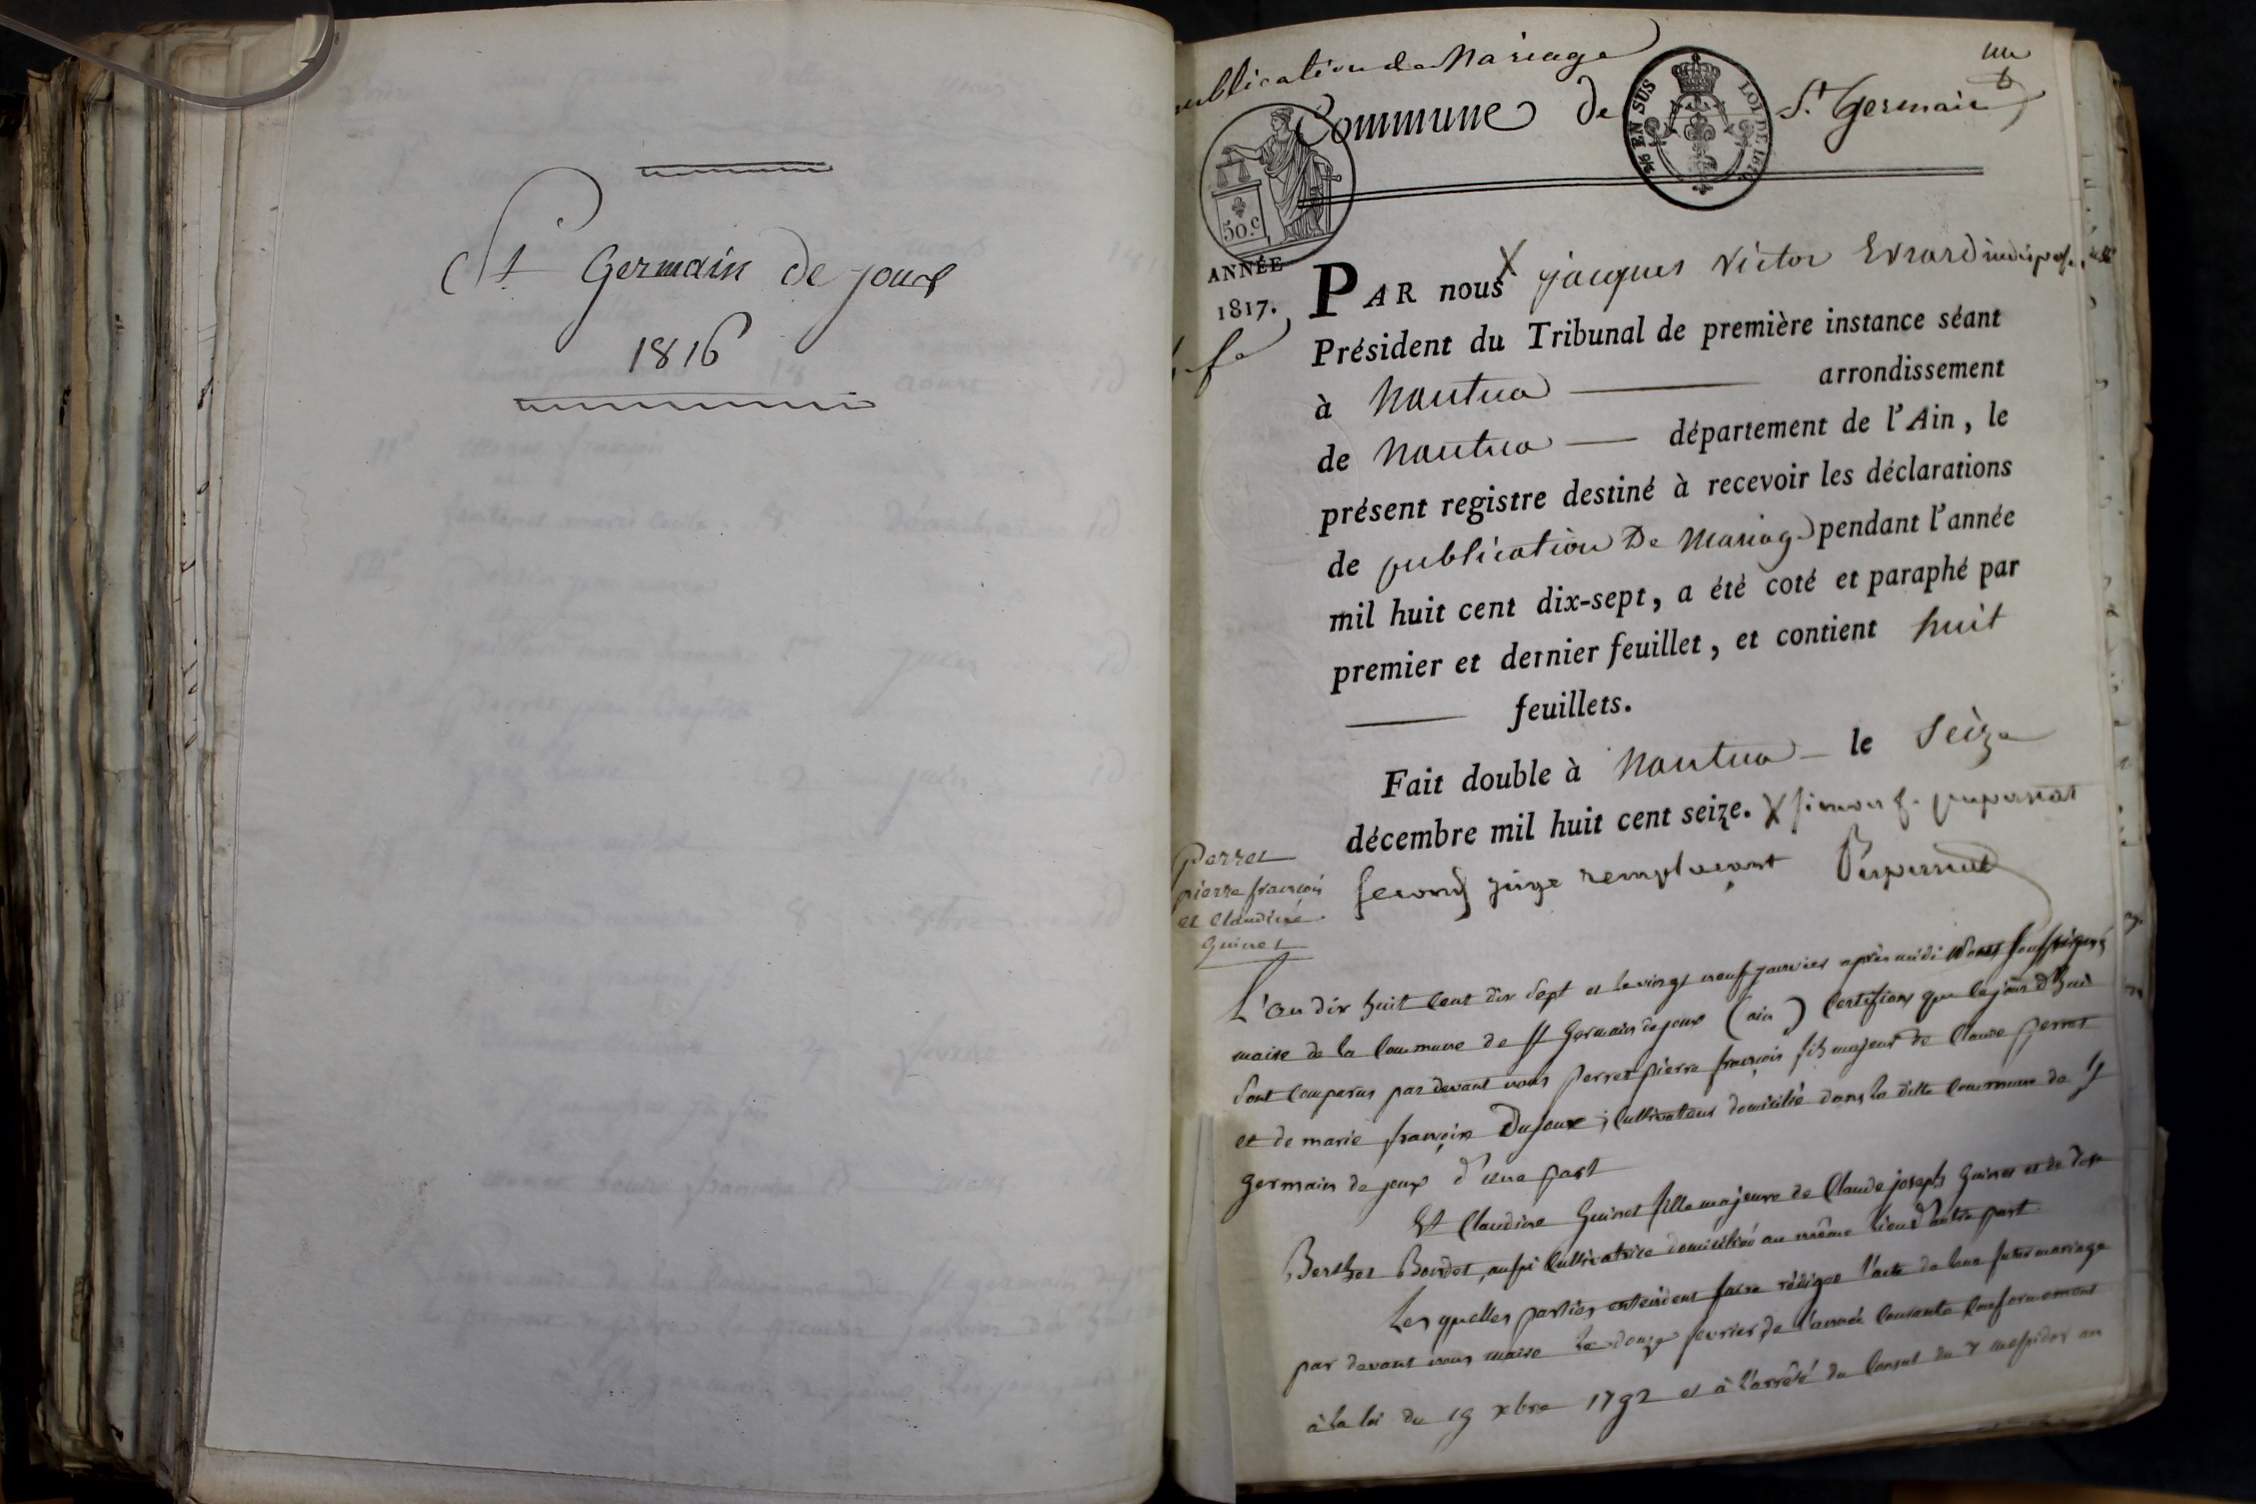 St Germain de joux
1816
publication de Mariage
un
Commune de St Germain
5/10 EN SUS LOI DE 1816
50.c
ANNÉE
1817.
PAR nous X jacques Victor Evrard
Président du Tribunal de première instance séant
à Nantua arrondissement
de Nantua département de l'Ain, le
présent registre destiné à recevoir les déclarations
de publication De Mariage pendant l'année
mil huit cent dix-sept, a été coté et paraphé par
premier et dernier feuillet, et contient huit
feuillets.
Fait double à Nantua le Seize
décembre mil huit cent seize. X
second juge remplaçant
perret
pierre françois
et Claudine
Guinet
L'an dix huit Cent dix Sept et le vingt neuf janvier après midi Nous Soussignés
maire de la Commune de St Germain de joux (ain) Certifions que Cejourd'hui
Sont Comparus pardevant nous perret pierre françois fils majeur de Claude perret
et de marie françoise Dujoux, Cultivateur domicilié dans la ditte Commune de St
germain de joux d'une part
Et Claudine Guinet fille majeure de Claude joseph Guinet et de
Berthet Bondet, aussi Cultivatrice domiciliée au même lieu d'autre part
Les quelles parties entendent faire rédiger l'acte de leur futur mariage
par devant nous maire le douze fevrier de l'année Courante Conformement
à la loi du 19 xbre 1792 et à l'arrêté du Consul du 7 messidor an